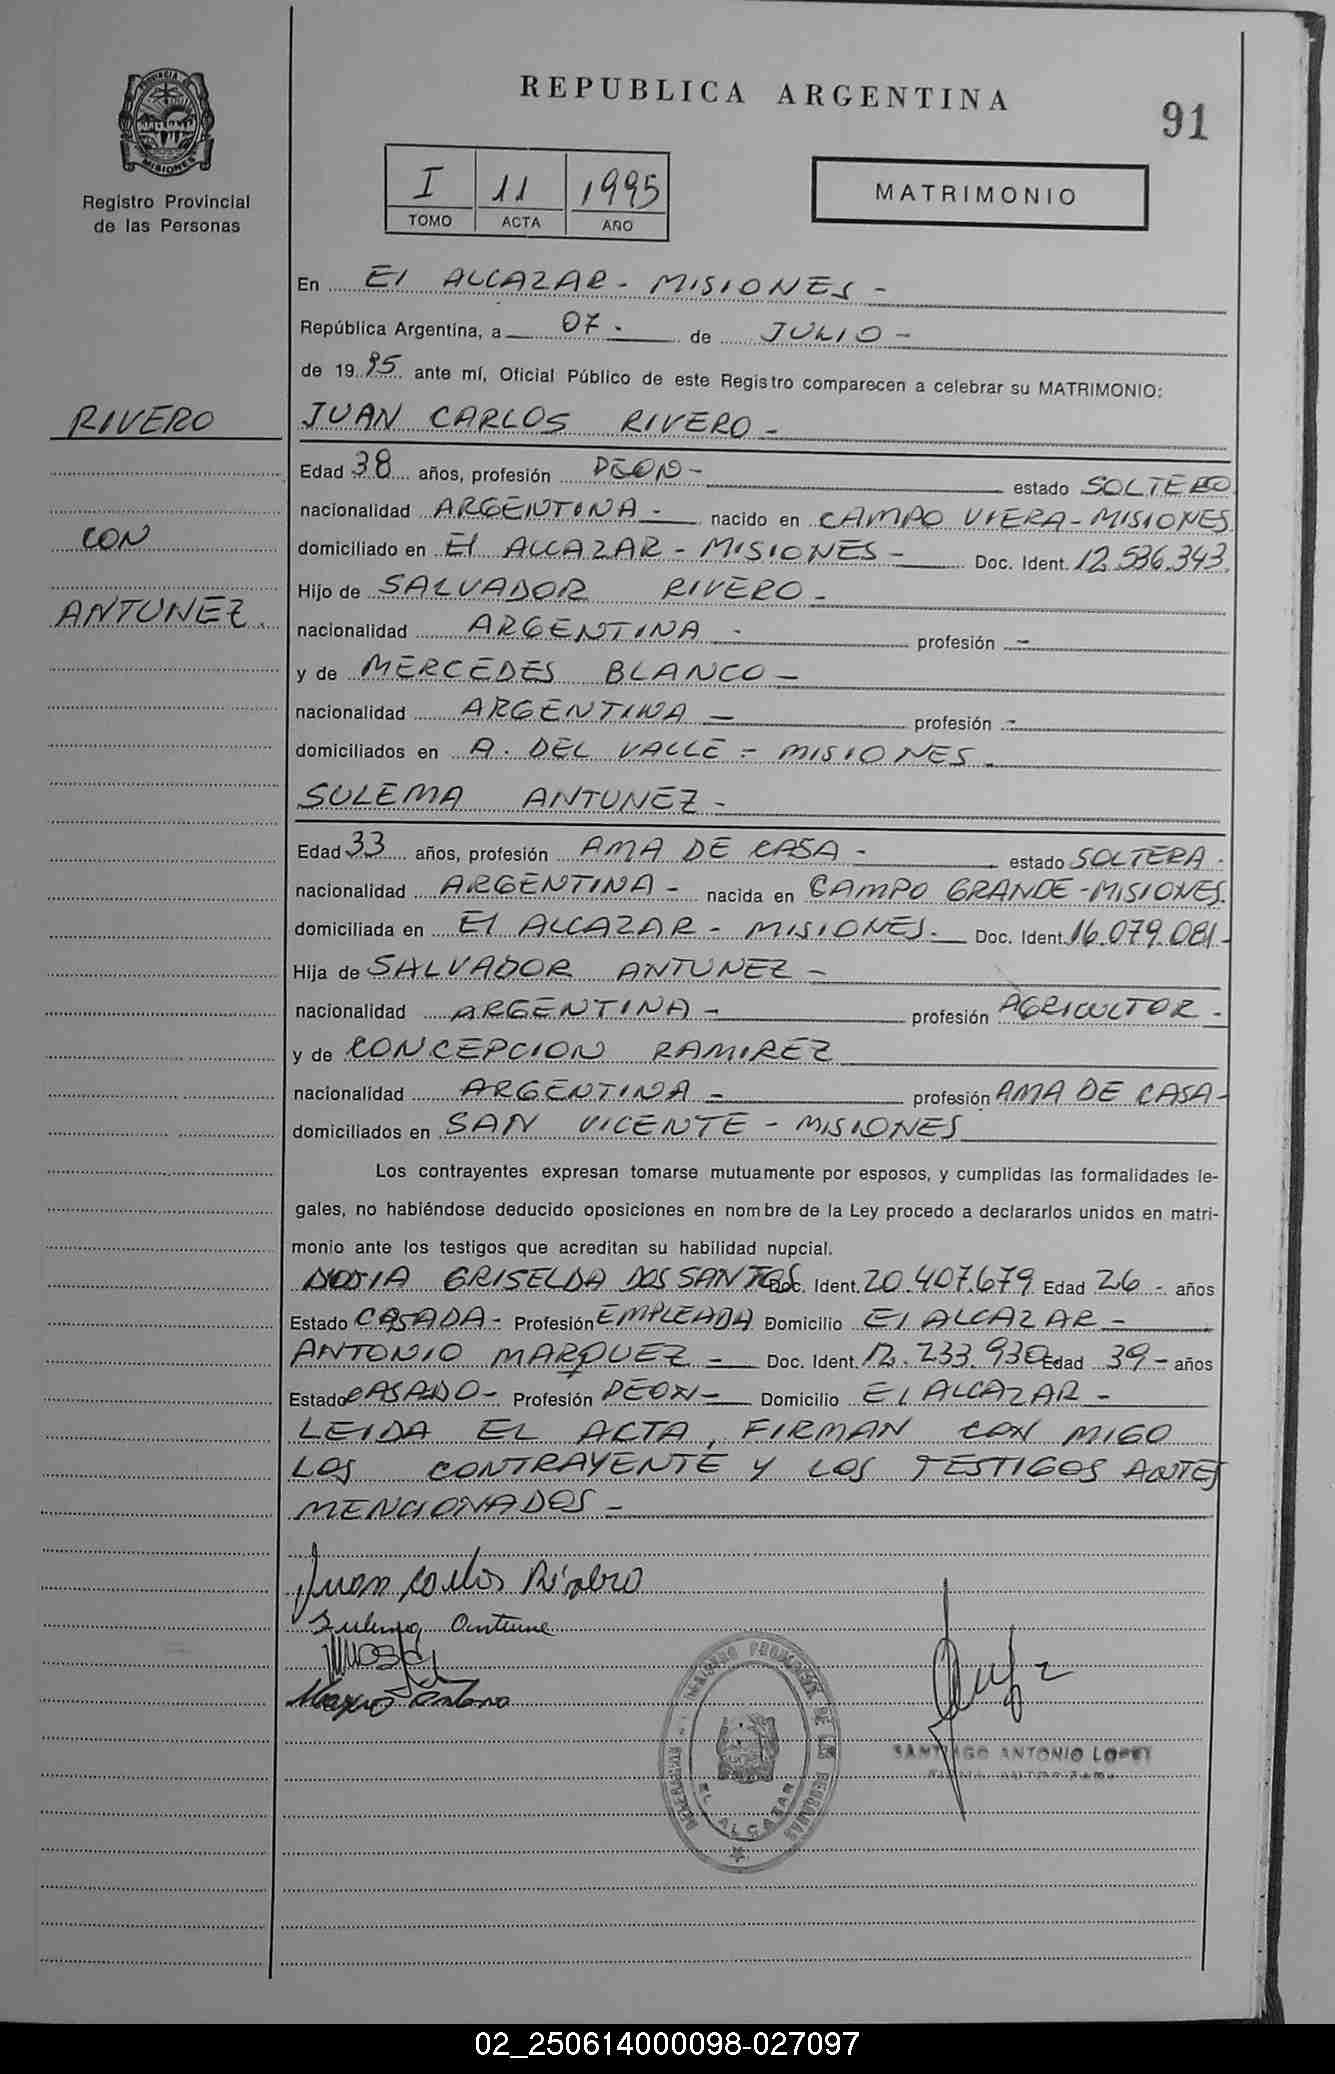 REPUBLICA ARGENTINA
91
PROVINCIA DE MISIONES
Registro Provincial
de las Personas
I 11 1995
TOMO ACTA AÑO
MATRIMONIO
En El ALCAZAR - MISIONES -
República Argentina, a 07 - de JULIO -
de 1995 ante mí, Oficial Público de este Registro comparecen a celebrar su MATRIMONIO:
RIVERO
CON
ANTUNEZ.
JUAN CARLOS RIVERO -
Edad 38 años, profesión PEON - estado SOLTERO
nacionalidad ARGENTINA - nacido en CAMPO VIERA - MISIONES
domiciliado en El ALCAZAR - MISIONES - Doc. Ident. 12.536.343.
Hijo de SALVADOR RIVERO -
nacionalidad ARGENTINA - profesión -
y de MERCEDES BLANCO -
nacionalidad ARGENTINA - profesión -
domiciliados en A. DEL VALLE - MISIONES -
SULEMA ANTUNEZ -
Edad 33 años, profesión AMA DE CASA - estado SOLTERA -
nacionalidad ARGENTINA - nacida en CAMPO GRANDE - MISIONES.
domiciliada en El ALCAZAR - MISIONES. Doc. Ident. 16.079.081-
Hija de SALVADOR ANTUNEZ -
nacionalidad ARGENTINA - profesión AGRICULTOR -
y de CONCEPCION RAMIREZ
nacionalidad ARGENTINA - profesión AMA DE CASA -
domiciliados en SAN VICENTE - MISIONES
Los contrayentes expresan tomarse mutuamente por esposos, y cumplidas las formalidades le-
gales, no habiéndose deducido oposiciones en nombre de la Ley procedo a declararlos unidos en matri-
monio ante los testigos que acreditan su habilidad nupcial.
GRISELDA DOS SANTOS Doc. Ident. 20.407.679 Edad 26 - años
Estado CASADA - Profesión EMPLEADA Domicilio El ALCAZAR -
ANTONIO MARQUEZ - Doc. Ident. 12.233.930 Edad 39 - años
Estado CASADO - Profesión PEON - Domicilio El ALCAZAR -
LEIDA EL ACTA, FIRMAN CON MIGO
LOS CONTRAYENTE Y LOS TESTIGOS ANTES
MENCIONADOS -
Juan Carlos Rivero
Sulema Antune
SANTIAGO ANTONIO LOPEZ
REGISTRO PROVINCIAL DE LAS PERSONAS
EL ALCAZAR
02_250614000098-027097